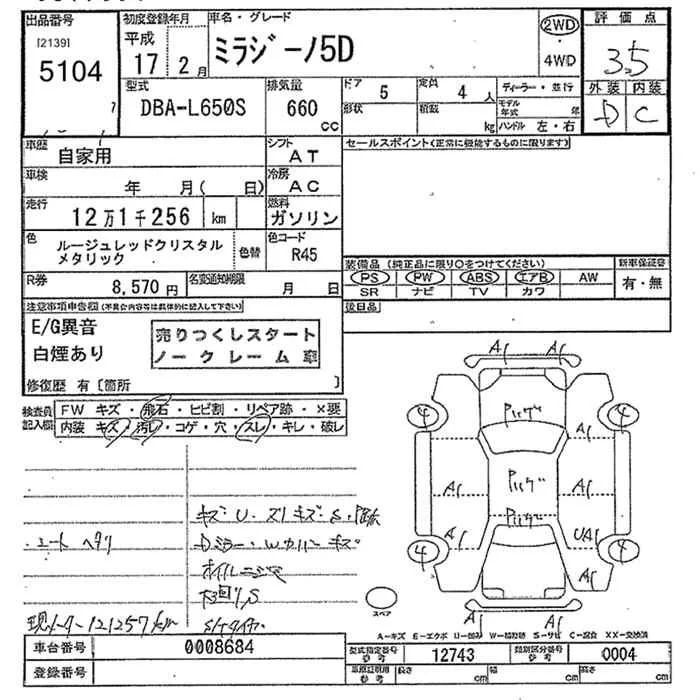 出品番号
[2139]
5104
初度登録年月
平成
17 2月
車名・グレード
ミラジーノ5D
2WD
・
4WD
評価点
3.5
外装 内装
D C
型式
DBA-L650S
排気量
660
cc
ドア 5
定員 4人
形状
積載 kg
ディーラー・並行
モデル年式 年
ハンドル 左・右
車歴
自家用
シフト
AT
セールスポイント(正常に機能するものに限ります)
車検
年 月( 日)
冷房
AC
走行
12万1千256 km
燃料
ガソリン
色
ルージュレッドクリスタル
メタリック
色替
色コード
R45
装備品(純正品に限り○をつけてください)
PS PW ABS エアB AW
SR ナビ TV カワ
新車保証書
有・無
R券
8,570円
名変通知期限
月 日
後日品
注意事項申告欄(不具合内容等は具体的に記入して下さい)
E/G異音
白煙あり
売りつくしスタート
ノークレーム車
修復歴 有〔箇所 〕
検査員記入欄
FW キズ・飛石・ヒビ割・リペア跡・×要
内装 キズ・汚レ・コゲ・穴・スレ・キレ・破レ
キズ U
シート ヘタリ
Dミラー・Wカバーキズ
オイルニジミ
現メーター121257km
A1 A1
4 4
A1 A1
A1 A1
A1 UA1
4 4
A1
A1 A1
スペア
A-キズ E-エクボ U-凹み W-補修跡 S-サビ C-腐食 XX-交換済
車台番号
0008684
登録番号
型式指定番号 参考
12743
類別区分番号 参考
0004
長さ cm
幅 cm
高さ cm